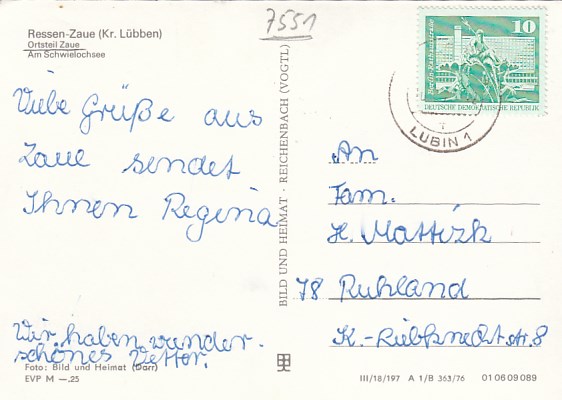 7551
Ressen-Zaue (Kr. Lübben)
Ortsteil Zaue
Am Schwielochsee
Viele Grüße aus
Zaue sendet
Ihnen Regina
Wir haben wunder-
schönes Wetter.
Foto: Bild und Heimat (Darr)
EVP M —.25
BILD UND HEIMAT · REICHENBACH (VOGTL)
10
Berlin, Rathausstraße
DEUTSCHE DEMOKRATISCHE REPUBLIK
LUBIN 1
An
Fam.
H. Mattizk
78 Ruhland
K.-Liebknecht-str. 8
III/18/197 A 1/B 363/76 01 06 09 089